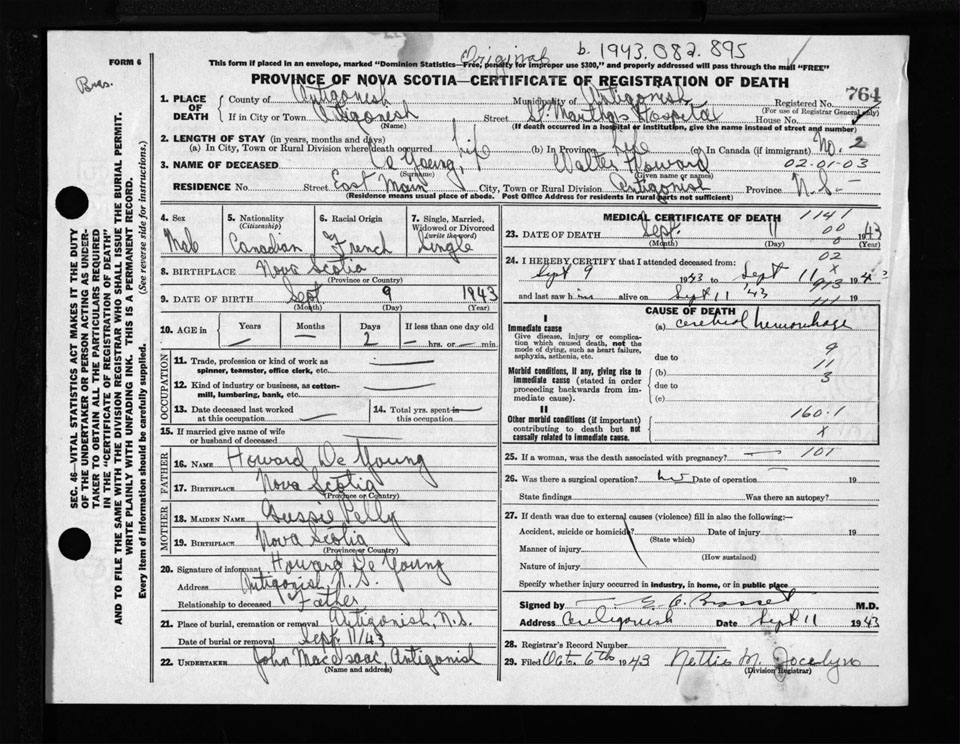 Original b. 1943.082.895
FORM 6
This form if placed in an envelope, marked "Dominion Statistics—Free, penalty for improper use $300," and properly addressed will pass through the mail "FREE"
PROVINCE OF NOVA SCOTIA—CERTIFICATE OF REGISTRATION OF DEATH
764
1. PLACE OF DEATH { County of Antigonish Municipality of Antigonish Registered No.
(For use of Registrar General only)
If in City or Town Antigonish Street St. Martha's Hospital House No.
(Name) (If death occurred in a hospital or institution, give the name instead of street and number)
2. LENGTH OF STAY (in years, months and days)
(a) In City, Town or Rural Division where death occurred life (b) In Province life (c) In Canada (if immigrant) No. 2
3. NAME OF DECEASED De Young, Walter Howard 02-01-03
(Surname) (Given name or names)
RESIDENCE No. Street East Main City, Town or Rural Division Antigonish Province N.S.
(Residence means usual place of abode. Post Office Address for residents in rural parts not sufficient)
SEC. 46—VITAL STATISTICS ACT MAKES IT THE DUTY
OF THE UNDERTAKER OR PERSON ACTING AS UNDER-
TAKER TO OBTAIN ALL THE PARTICULARS REQUIRED
IN THE "CERTIFICATE OF REGISTRATION OF DEATH"
AND TO FILE THE SAME WITH THE DIVISION REGISTRAR WHO SHALL ISSUE THE BURIAL PERMIT.
WRITE PLAINLY WITH UNFADING INK. THIS IS A PERMANENT RECORD.
Every item of Information should be carefully supplied. (See reverse side for instructions.)
4. Sex 5. Nationality 6. Racial Origin 7. Single, Married,
(Citizenship) Widowed or Divorced
(write the word)
Male Canadian French Single
8. BIRTHPLACE Nova Scotia
(Province or Country)
9. DATE OF BIRTH Sept 9 1943
(Month) (Day) (Year)
10. AGE in { Years Months Days If less than one day old
— — 2 — hrs. or — min.
OCCUPATION
11. Trade, profession or kind of work as
spinner, teamster, office clerk, etc.
12. Kind of industry or business, as cotton-
mill, lumbering, bank, etc.
13. Date deceased last worked
at this occupation
14. Total yrs. spent in
this occupation
15. If married give name of wife
or husband of deceased
FATHER
16. NAME Howard De Young
17. BIRTHPLACE Nova Scotia
(Province or Country)
MOTHER
18. MAIDEN NAME
19. BIRTHPLACE Nova Scotia
(Province or Country)
20. Signature of informant Howard De Young
Address Antigonish, N.S.
Relationship to deceased Father
21. Place of burial, cremation or removal Antigonish, N.S.
Date of burial or removal Sept. 11/43
22. UNDERTAKER John MacIsaac, Antigonish
(Name and address)
MEDICAL CERTIFICATE OF DEATH 1141
23. DATE OF DEATH Sept. 11 1943
(Month) (Day) (Year)
00
8
02
24. I HEREBY CERTIFY that I attended deceased from:
Sept 9 1943 to Sept 11 194
X
and last saw him alive on Sept 11 '43 19
CAUSE OF DEATH
I
Immediate cause
Give disease, injury or complica-
tion which caused death, not the
mode of dying, such as heart failure,
asphyxia, asthenia, etc.
(a) cerebral hemorrhage
due to
9
11
3
Morbid conditions, if any, giving rise to
immediate cause (stated in order
proceeding backwards from im-
mediate cause).
(b)
due to
(c)
II
Other morbid conditions (if important)
contributing to death but not
causally related to immediate cause.
160.1
X
25. If a woman, was the death associated with pregnancy? — 101
26. Was there a surgical operation? no Date of operation 19
State findings Was there an autopsy?
27. If death was due to external causes (violence) fill in also the following:—
Accident, suicide or homicide? Date of injury 19
(State which)
Manner of injury
(How sustained)
Nature of injury
Specify whether injury occurred in industry, in home, or in public place
Signed by M.D.
Address Antigonish Date Sept 11 1943
28. Registrar's Record Number
29. Filed Oct. 6th 1943 Nettie M. Jocelyn
(Division Registrar)